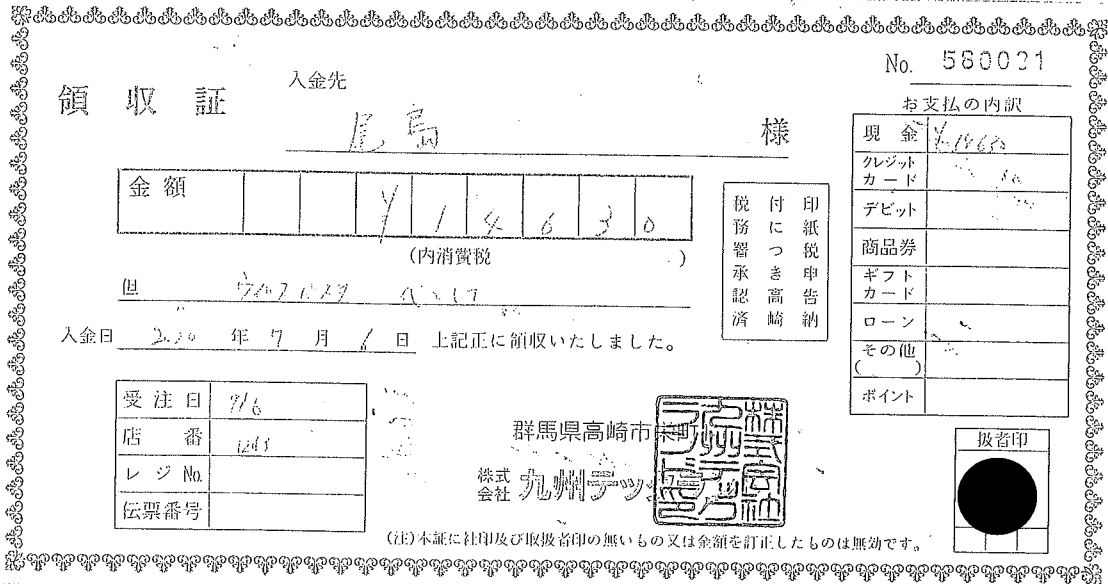 No. 580021
領収証
入金先
尾島 様
金額 ¥14630
(内消費税 )
但
入金日 年 7 月 6 日 上記正に領収いたしました。
印紙税申告納
付につき高崎
税務署承認済
お支払の内訳
現金 ¥14630
クレジットカード
デビット
商品券
ギフトカード
ローン
その他( )
ポイント
受注日 7/6
店番
レジNo.
伝票番号
群馬県高崎市栄町
株式会社 九州テッ
扱者印
(注)本証に社印及び取扱者印の無いもの又は金額を訂正したものは無効です。